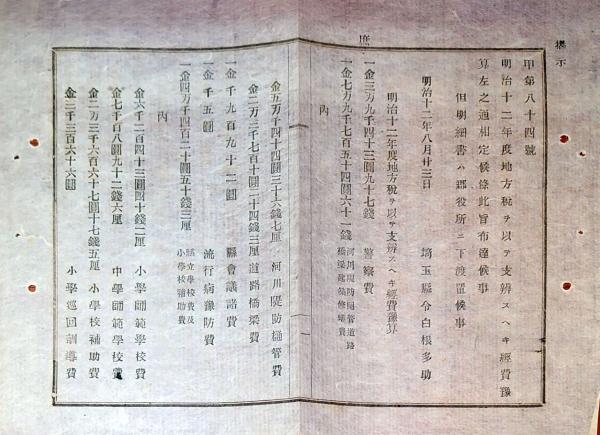 揭示
甲第八十四號
明治十二年度地方稅ヲ以テ支辨スヘキ經費豫
算左之通相定候條此旨布達候事
但明細書ハ郡役所ニ下渡置候事
明治十二年八月廿三日 埼玉縣令白根多助
庶
明治十二年度地方稅ヲ以テ支辨スヘキ經費豫算
一金三万九千四十三圓九十七錢 警察費
一金七万九千七百五十四圓六十一錢 河川堤防樋管道路橋梁建築修繕費
內
金五万千四十四圓三十六錢七厘 河川堤防樋管費
金二万三千七百十圓二十四錢三厘 道路橋梁費
一金千九百九十二圓 縣會議諸費
一金千五圓 流行病豫防費
一金四万千四百二十圓五十錢三厘 縣立學校費及小學校補助費
內
金六千二百四十三圓四十錢二厘 小學師範學校費
金七千百八圓九十二錢六厘 中學師範學校費
金二万三千六百六十七圓十七錢五厘 小學校補助費
金三千三百六十六圓 小學巡回訓導費